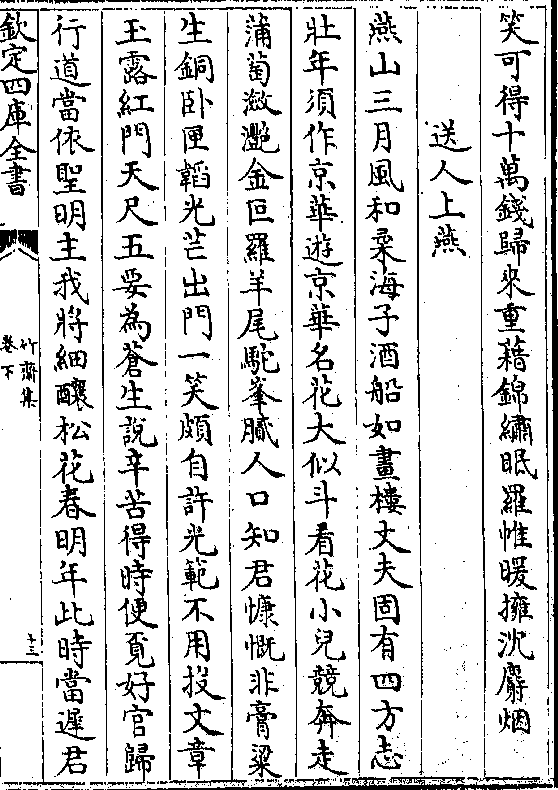 笑可得十萬錢歸來重藉錦繡眠羅帷暖擁沈麝烟
送人上燕
燕山三月風和柔海子酒船如畫樓丈夫固有四方志
壯年須作京華遊京華名花大似斗看花小兒競奔走
蒲萄瀲灔金叵羅羊尾駝峯膩人口知君慷慨非膏粱
生銅卧匣韜光芒出門一笑頗自許光範不用投文章
玉露紅門天尺五要為蒼生說辛苦得時便覓好官歸
行道當依聖明主我將細釀松花春明年此時當遲君
欽定四庫全書
竹齋集
卷下
十三